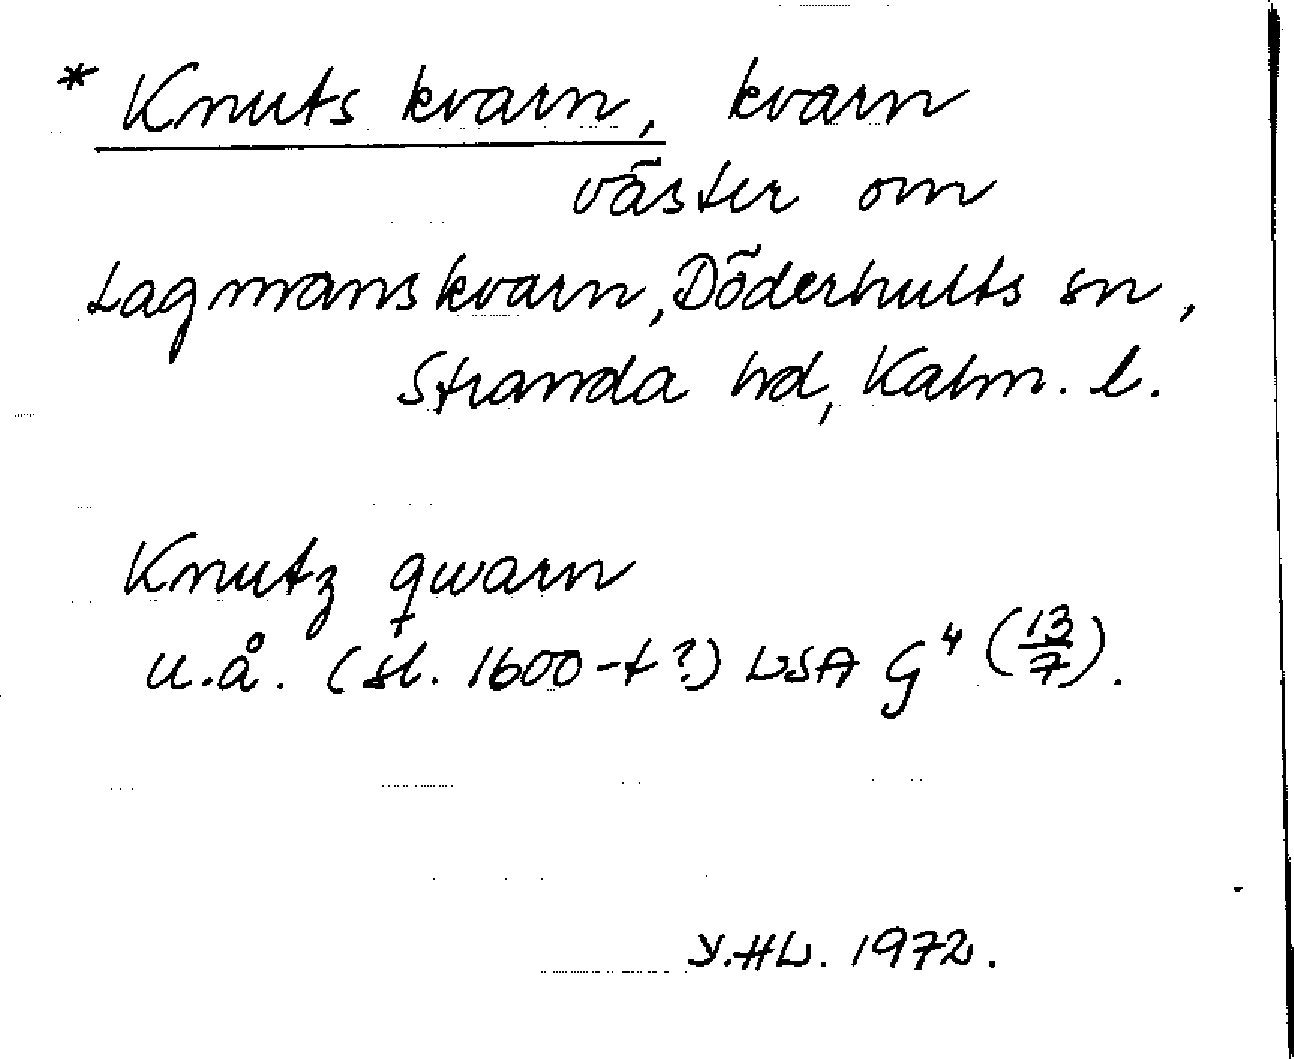 * Knuts kvarn, kvarn
väster om
Lagmanskvarn, Döderhults sn,
Stranda hd, Kalm. l.
Knutz qwarn
u.å. (sl. 1600-t?) LSA G⁴ (13/7).
Y.HL. 1972.